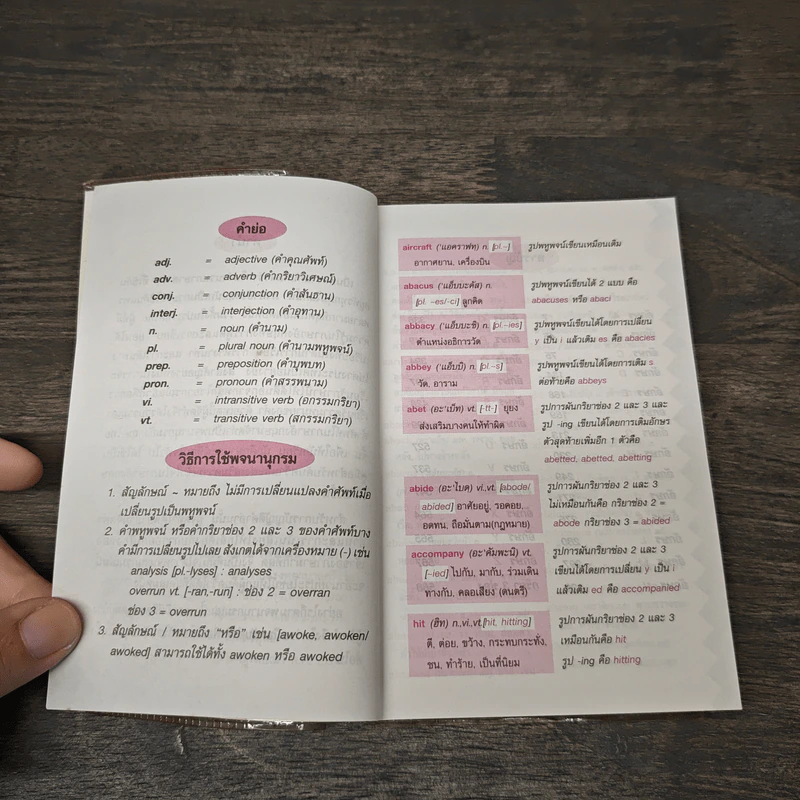 คำย่อ
adj. = adjective (คำคุณศัพท์)
adv. = adverb (คำกริยาวิเศษณ์)
conj. = conjunction (คำสันธาน)
interj. = interjection (คำอุทาน)
n. = noun (คำนาม)
pl. = plural noun (คำนามพหูพจน์)
prep. = preposition (คำบุพบท)
pron. = pronoun (คำสรรพนาม)
vi. = intransitive verb (อกรรมกริยา)
vt. = transitive verb (สกรรมกริยา)
วิธีการใช้พจนานุกรม
1. สัญลักษณ์ ~ หมายถึง ไม่มีการเปลี่ยนแปลงคำศัพท์เมื่อ
เปลี่ยนรูปเป็นพหูพจน์
2. คำพหูพจน์ หรือคำกริยาช่อง 2 และ 3 ของคำศัพท์บาง
คำมีการเปลี่ยนรูปไปเลย สังเกตได้จากเครื่องหมาย (-) เช่น
analysis [pl.-lyses] : analyses
overrun vt. [-ran,-run] : ช่อง 2 = overran
ช่อง 3 = overrun
3. สัญลักษณ์ / หมายถึง "หรือ" เช่น [awoke, awoken/
awoked] สามารถใช้ได้ทั้ง awoken หรือ awoked
aircraft ('แอคราฟท) n. [pl.~]
อากาศยาน, เครื่องบิน
รูปพหูพจน์เขียนเหมือนเดิม
abacus ('แอ็บบะคัส) n.
[pl. -es/-ci] ลูกคิด
รูปพหูพจน์เขียนได้ 2 แบบ คือ
abacuses หรือ abaci
abbacy ('แอ็บบะซิ) n. [pl.-ies]
ตำแหน่งอธิการวัด
รูปพหูพจน์เขียนได้โดยการเปลี่ยน
y เป็น i แล้วเติม es คือ abacies
abbey ('แอ็บบี) n. [pl.-s]
วัด, อาราม
รูปพหูพจน์เขียนได้โดยการเติม s
ต่อท้ายคือ abbeys
abet (อะ'เบ็ท) vt. [-tt-] ยุยง
ส่งเสริมบางคนให้ทำผิด
รูปการผันกริยาช่อง 2 และ 3 และ
รูป -ing เขียนได้โดยการเติมอักษร
ตัวสุดท้ายเพิ่มอีก 1 ตัวคือ
abetted, abetted, abetting
abide (อะ'ไบด) vi.,vt. [abode/
abided] อาศัยอยู่, รอคอย,
อดทน, ถือมั่นตาม(กฎหมาย)
รูปการผันกริยาช่อง 2 และ 3
ไม่เหมือนกันคือ กริยาช่อง 2 =
abode กริยาช่อง 3 = abided
accompany (อะ'คัมพะนิ) vt.
[-ied] ไปกับ, มากับ, ร่วมเดิน
ทางกับ, คลอเสียง (ดนตรี)
รูปการผันกริยาช่อง 2 และ 3
เขียนได้โดยการเปลี่ยน y เป็น i
แล้วเติม ed คือ accompanied
hit (ฮิท) n.,vi.,vt.[hit, hitting]
ตี, ต่อย, ขว้าง, กระทบกระทั่ง,
ชน, ทำร้าย, เป็นที่นิยม
รูปการผันกริยาช่อง 2 และ 3
เหมือนกันคือ hit
รูป -ing คือ hitting